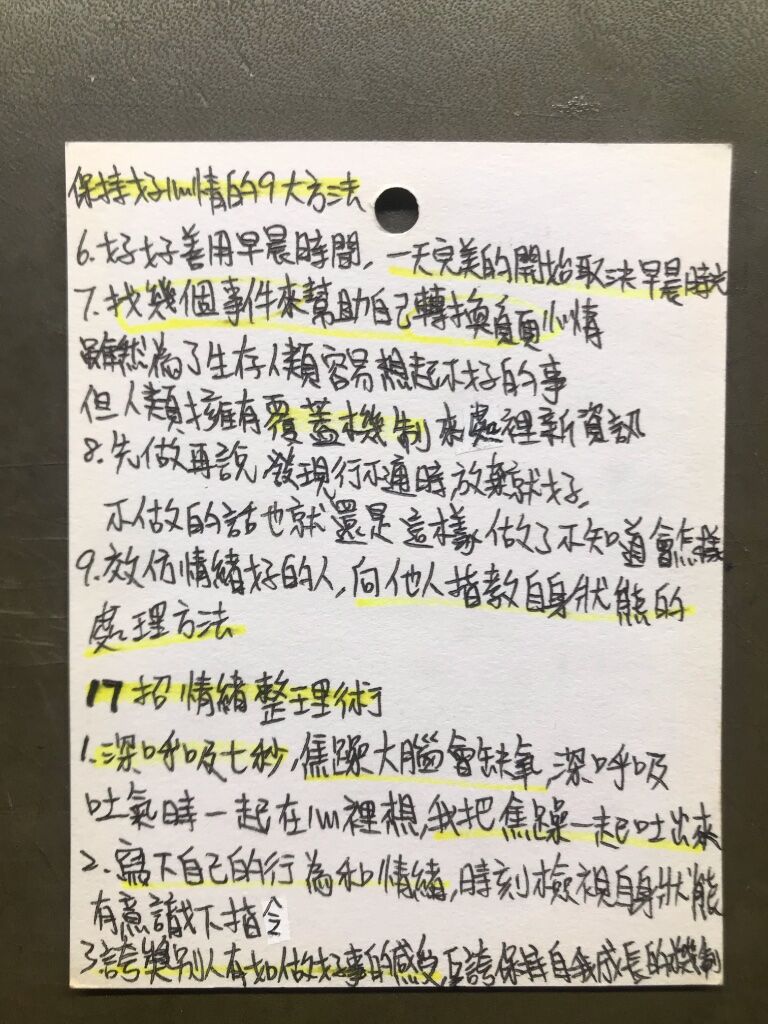 保持好心情的9大方法
6.好好善用早晨時間,一天完美的開始取決早晨時光
7.找幾個事件來幫助自己轉換負面心情
雖然為了生存人類容易想起不好的事
但人類擁有覆蓋機制來處裡新資訊
8.先做再說,發現行不通時,放棄就好,
不做的話也就還是這樣,做了不知道會怎樣
9.效仿情緒好的人,向他人指教自身狀態的
處理方法
17招情緒整理術
1.深呼吸七秒,焦躁大腦會缺氧,深呼吸
吐氣時一起在心裡想,我把焦躁一起吐出來
2.寫下自己的行為和情緒,時刻檢視自身狀態
有意識下指令
3.誇獎別人有如做好事的感受,互誇保持自我成長的機制